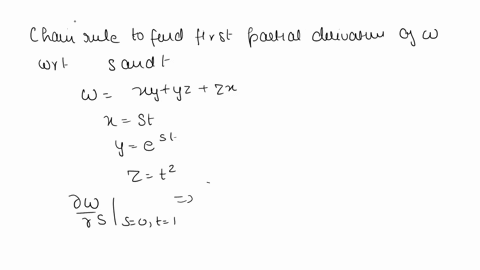 Chain rule to find first partial derivatives of ω
wrt s and t
ω = xy + yz + zx
x = st
y = e^{st}
z = t²
∂ω/∂s |_{s=0, t=1} =>